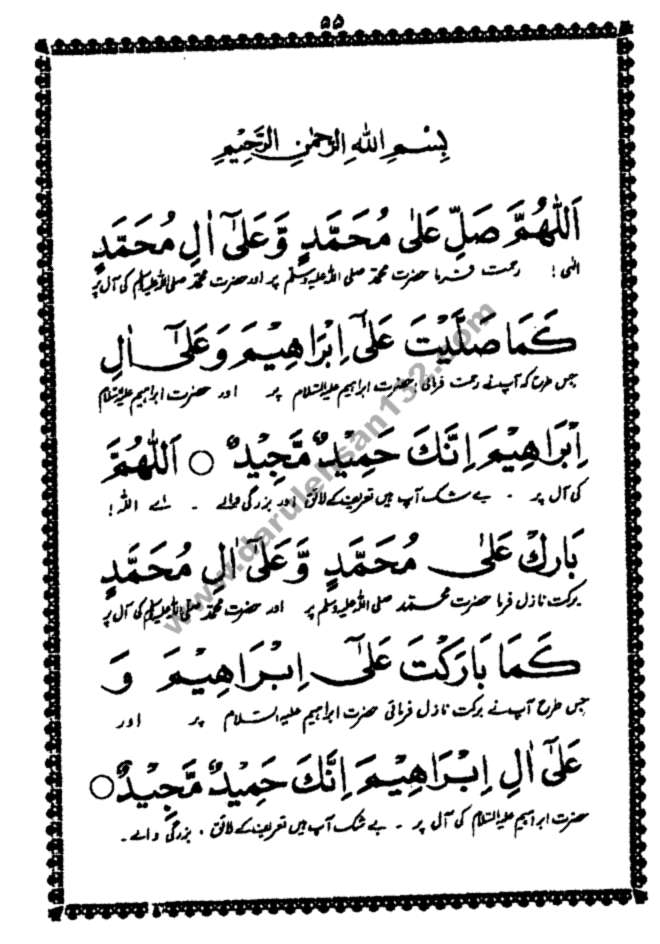 ۵۵
بِسْمِ اللهِ الرَّحْمٰنِ الرَّحِيْمِ
اَللّٰهُمَّ صَلِّ عَلٰى مُحَمَّدٍ وَّعَلٰٓى اٰلِ مُحَمَّدٍ
الٰہی! رحمت فرما حضرت محمد صلی اللہ علیہ وسلم پر اور حضرت محمد صلی اللہ علیہ وسلم کی آل پر
كَمَا صَلَّيْتَ عَلٰٓى اِبْرَاهِيْمَ وَعَلٰٓى اٰلِ
جس طرح کہ آپ نے رحمت فرمائی حضرت ابراہیم علیہ السلام پر اور حضرت ابراہیم علیہ السلام
اِبْرَاهِيْمَ اِنَّكَ حَمِيْدٌ مَّجِيْدٌ ○ اَللّٰهُمَّ
کی آل پر ۔ بے شک آپ ہیں تعریف کے لائق اور بزرگی والے ۔ اے اللہ!
بَارِكْ عَلٰى مُحَمَّدٍ وَّعَلٰٓى اٰلِ مُحَمَّدٍ
برکت نازل فرما حضرت محمد صلی اللہ علیہ وسلم پر اور حضرت محمد صلی اللہ علیہ وسلم کی آل پر
كَمَا بَارَكْتَ عَلٰٓى اِبْرَاهِيْمَ وَ
جس طرح آپ نے برکت نازل فرمائی حضرت ابراہیم علیہ السلام پر اور
عَلٰٓى اٰلِ اِبْرَاهِيْمَ اِنَّكَ حَمِيْدٌ مَّجِيْدٌ ○
حضرت ابراہیم علیہ السلام کی آل پر ۔ بے شک آپ ہیں تعریف کے لائق ، بزرگی والے ۔
www.darulehsan132.com